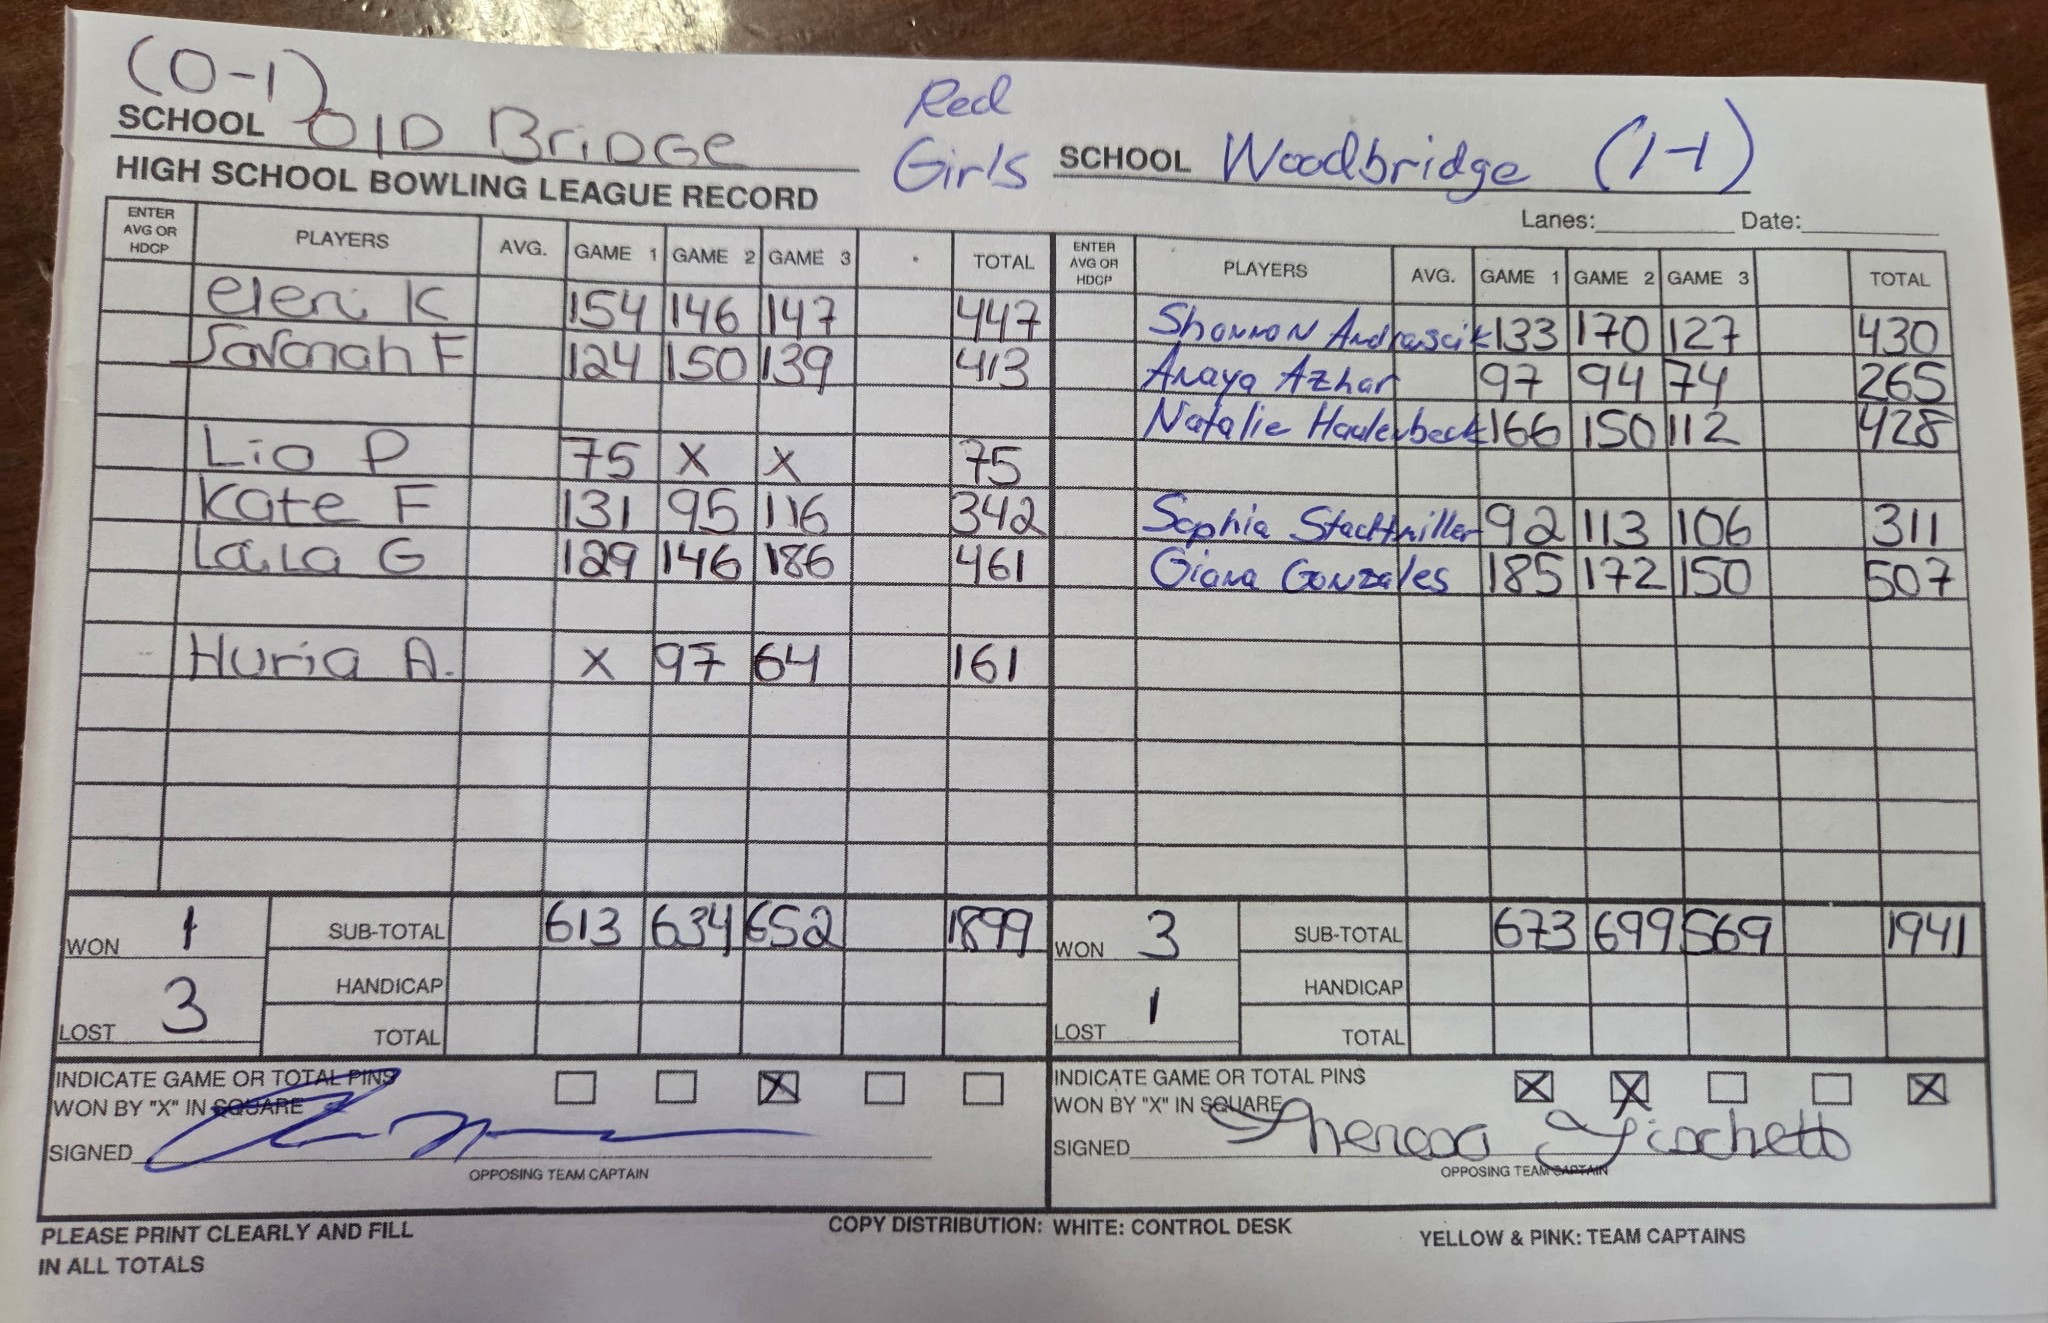 (0-1)
SCHOOL OlD BriDGe
Red
Girls
SCHOOL Woodbridge (1-1)
HIGH SCHOOL BOWLING LEAGUE RECORD
Lanes: Date:
ENTER AVG OR HDCP PLAYERS AVG. GAME 1 GAME 2 GAME 3 TOTAL ENTER AVG OR HDCP PLAYERS AVG. GAME 1 GAME 2 GAME 3 TOTAL
eleni K 154 146 147 447 Shannon Andrascik 133 170 127 430
Savanah F 124 150 139 413 Anaya Azhar 97 94 74 265
Natalie 166 150 112 428
Lia P 75 X X 75
Kate F 131 95 116 342 Sophia 92 113 106 311
Laila G 129 146 186 461 Giana Gonzales 185 172 150 507
Huria A. X 97 64 161
WON 1 SUB-TOTAL 613 634 652 1899 WON 3 SUB-TOTAL 673 699 569 1941
HANDICAP HANDICAP
LOST 3 TOTAL LOST 1 TOTAL
INDICATE GAME OR TOTAL PINS X INDICATE GAME OR TOTAL PINS X X X
WON BY "X" IN SQUARE WON BY "X" IN SQUARE
SIGNED SIGNED Theresa
OPPOSING TEAM CAPTAIN OPPOSING TEAM CAPTAIN
PLEASE PRINT CLEARLY AND FILL
IN ALL TOTALS
COPY DISTRIBUTION: WHITE: CONTROL DESK YELLOW & PINK: TEAM CAPTAINS